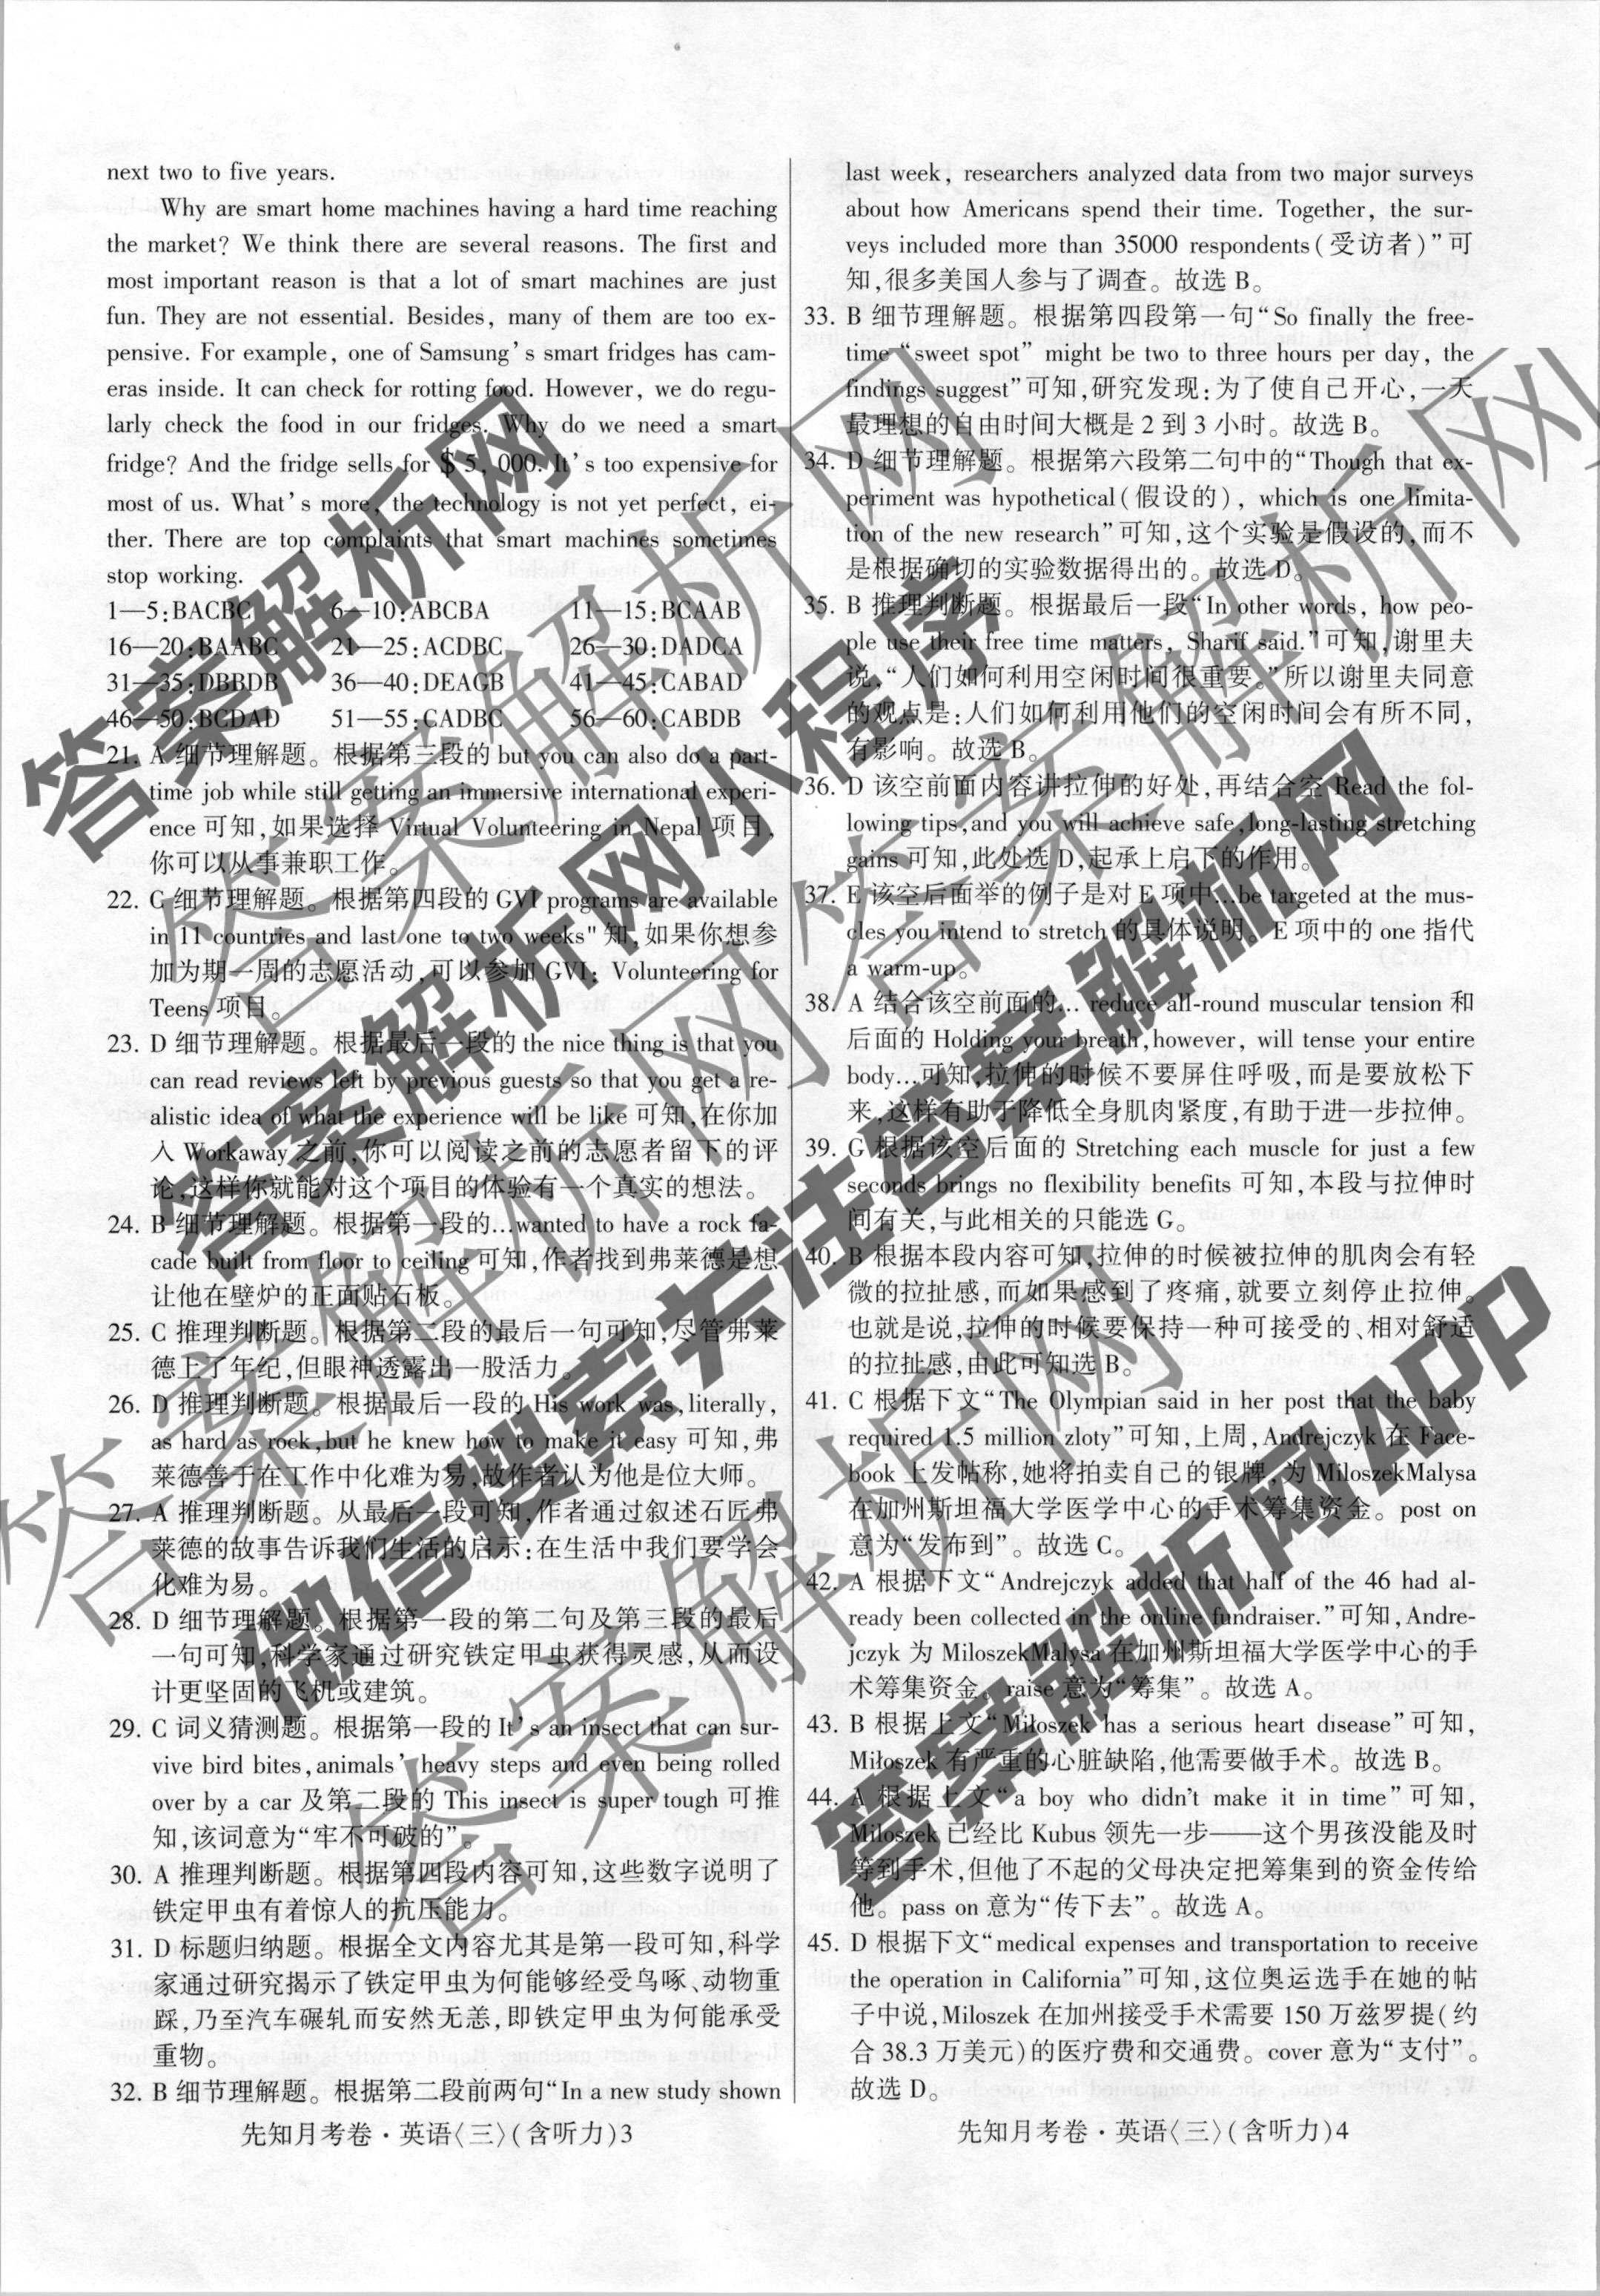 next two to five years.
Why are smart home machines having a hard time reaching
the market? We think there are several reasons. The first and
most important reason is that a lot of smart machines are just
fun. They are not essential. Besides, many of them are too ex-
pensive. For example, one of Samsung's smart fridges has cam-
eras inside. It can check for rotting food. However, we do regu-
larly check the food in our fridges. Why do we need a smart
fridge? And the fridge sells for $ 5, 000. It's too expensive for
most of us. What's more, the technology is not yet perfect, ei-
ther. There are top complaints that smart machines sometimes
stop working.
1—5:BACBC 6—10:ABCBA 11—15:BCAAB
16—20:BAABC 21—25:ACDBC 26—30:DADCA
31—35:DBBDB 36—40:DEAGB 41—45:CABAD
46—50:BCDAD 51—55:CADBC 56—60:CABDB
21. A 细节理解题。根据第三段的 but you can also do a part-
time job while still getting an immersive international experi-
ence 可知,如果选择 Virtual Volunteering in Nepal 项目,
你可以从事兼职工作。
22. C 细节理解题。根据第四段的 GVI programs are available
in 11 countries and last one to two weeks"知,如果你想参
加为期一周的志愿活动,可以参加 GVI: Volunteering for
Teens 项目。
23. D 细节理解题。根据最后一段的 the nice thing is that you
can read reviews left by previous guests so that you get a re-
alistic idea of what the experience will be like 可知,在你加
入 Workaway 之前,你可以阅读之前的志愿者留下的评
论,这样你就能对这个项目的体验有一个真实的想法。
24. B 细节理解题。根据第一段的…wanted to have a rock fa-
cade built from floor to ceiling 可知,作者找到弗莱德是想
让他在壁炉的正面贴石板。
25. C 推理判断题。根据第二段的最后一句可知,尽管弗莱
德上了年纪,但眼神透露出一股活力。
26. D 推理判断题。根据最后一段的 His work was,literally,
as hard as rock,but he knew how to make it easy 可知,弗
莱德善于在工作中化难为易,故作者认为他是位大师。
27. A 推理判断题。从最后一段可知,作者通过叙述石匠弗
莱德的故事告诉我们生活的启示:在生活中我们要学会
化难为易。
28. D 细节理解题。根据第一段的第二句及第三段的最后
一句可知,科学家通过研究铁定甲虫获得灵感,从而设
计更坚固的飞机或建筑。
29. C 词义猜测题。根据第一段的 It's an insect that can sur-
vive bird bites,animals' heavy steps and even being rolled
over by a car 及第二段的 This insect is super tough 可推
知,该词意为“牢不可破的”。
30. A 推理判断题。根据第四段内容可知,这些数字说明了
铁定甲虫有着惊人的抗压能力。
31. D 标题归纳题。根据全文内容尤其是第一段可知,科学
家通过研究揭示了铁定甲虫为何能够经受鸟啄、动物重
踩,乃至汽车碾轧而安然无恙,即铁定甲虫为何能承受
重物。
32. B 细节理解题。根据第二段前两句“In a new study shown
先知月考卷·英语〈三〉(含听力)3
last week, researchers analyzed data from two major surveys
about how Americans spend their time. Together, the sur-
veys included more than 35000 respondents(受访者)”可
知,很多美国人参与了调查。故选 B。
33. B 细节理解题。根据第四段第一句“So finally the free-
time “sweet spot” might be two to three hours per day, the
findings suggest”可知,研究发现:为了使自己开心,一天
最理想的自由时间大概是 2 到 3 小时。故选 B。
34. D 细节理解题。根据第六段第二句中的“Though that ex-
periment was hypothetical(假设的), which is one limita-
tion of the new research”可知,这个实验是假设的,而不
是根据确切的实验数据得出的。故选 D。
35. B 推理判断题。根据最后一段“In other words, how peo-
ple use their free time matters, Sharif said.”可知,谢里夫
说,“人们如何利用空闲时间很重要。”所以谢里夫同意
的观点是:人们如何利用他们的空闲时间会有所不同,
有影响。故选 B。
36. D 该空前面内容讲拉伸的好处,再结合空 Read the fol-
lowing tips,and you will achieve safe,long-lasting stretching
gains 可知,此处选 D,起承上启下的作用。
37. E 该空后面举的例子是对 E 项中…be targeted at the mus-
cles you intend to stretch 的具体说明。E 项中的 one 指代
a warm-up。
38. A 结合该空前面的… reduce all-round muscular tension 和
后面的 Holding your breath,however, will tense your entire
body…可知,拉伸的时候不要屏住呼吸,而是要放松下
来,这样有助于降低全身肌肉紧度,有助于进一步拉伸。
39. G 根据该空后面的 Stretching each muscle for just a few
seconds brings no flexibility benefits 可知,本段与拉伸时
间有关,与此相关的只能选 G。
40. B 根据本段内容可知,拉伸的时候被拉伸的肌肉会有轻
微的拉扯感,而如果感到了疼痛,就要立刻停止拉伸。
也就是说,拉伸的时候要保持一种可接受的、相对舒适
的拉扯感,由此可知选 B。
41. C 根据下文“The Olympian said in her post that the baby
required 1.5 million zloty”可知,上周,Andrejczyk 在 Face-
book 上发帖称,她将拍卖自己的银牌,为 MiloszekMalysa
在加州斯坦福大学医学中心的手术筹集资金。post on
意为“发布到”。故选 C。
42. A 根据下文“Andrejczyk added that half of the 46 had al-
ready been collected in the online fundraiser.”可知,Andre-
jczyk 为 MiloszekMalysa 在加州斯坦福大学医学中心的手
术筹集资金。raise 意为“筹集”。故选 A。
43. B 根据上文“Miłoszek has a serious heart disease”可知,
Miłoszek 有严重的心脏缺陷,他需要做手术。故选 B。
44. A 根据上文“a boy who didn't make it in time”可知,
Miloszek 已经比 Kubus 领先一步——这个男孩没能及时
等到手术,但他了不起的父母决定把筹集到的资金传给
他。pass on 意为“传下去”。故选 A。
45. D 根据下文“medical expenses and transportation to receive
the operation in California”可知,这位奥运选手在她的帖
子中说,Miloszek 在加州接受手术需要 150 万兹罗提(约
合 38.3 万美元)的医疗费和交通费。cover 意为“支付”。
故选 D。
先知月考卷·英语〈三〉(含听力)4
答案解析网
答案解析网小程序
微信搜索关注答案解析网
答案解析网APP
答案解析网
答案解析网
答案解析网
答案解析网